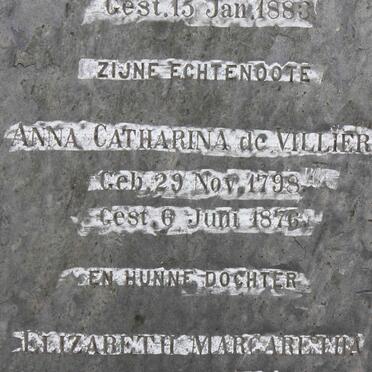 Gest. 15 Jan. 1883
ZIJNE ECHTENOOTE
ANNA CATHARINA de VILLIER
Geb. 29 Nov. 1798
Gest. 6 Juni 1876
EN HUNNE DOCHTER
ELIZABETH MARGARETHA